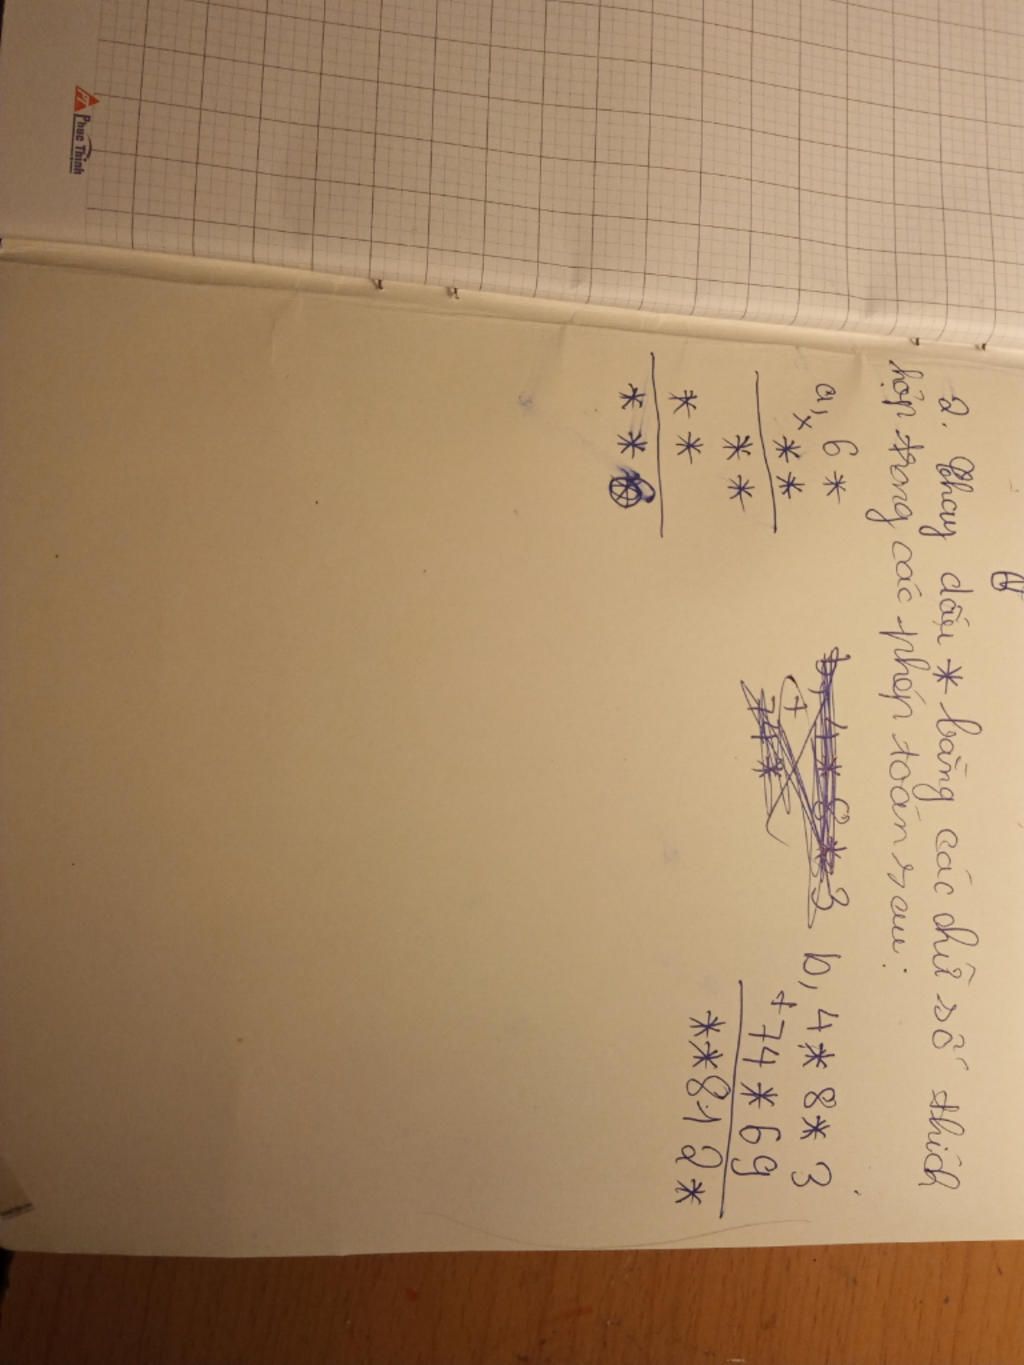 2. Thay dấu * bằng các chữ số thích
hợp trong các phép toán sau:
a, 6 *
x * *
* *
* *
* * *
b, 4 * 8 * 3
+ 7 4 * 6 9
* * 8 1 2 *
Phuc Thinh